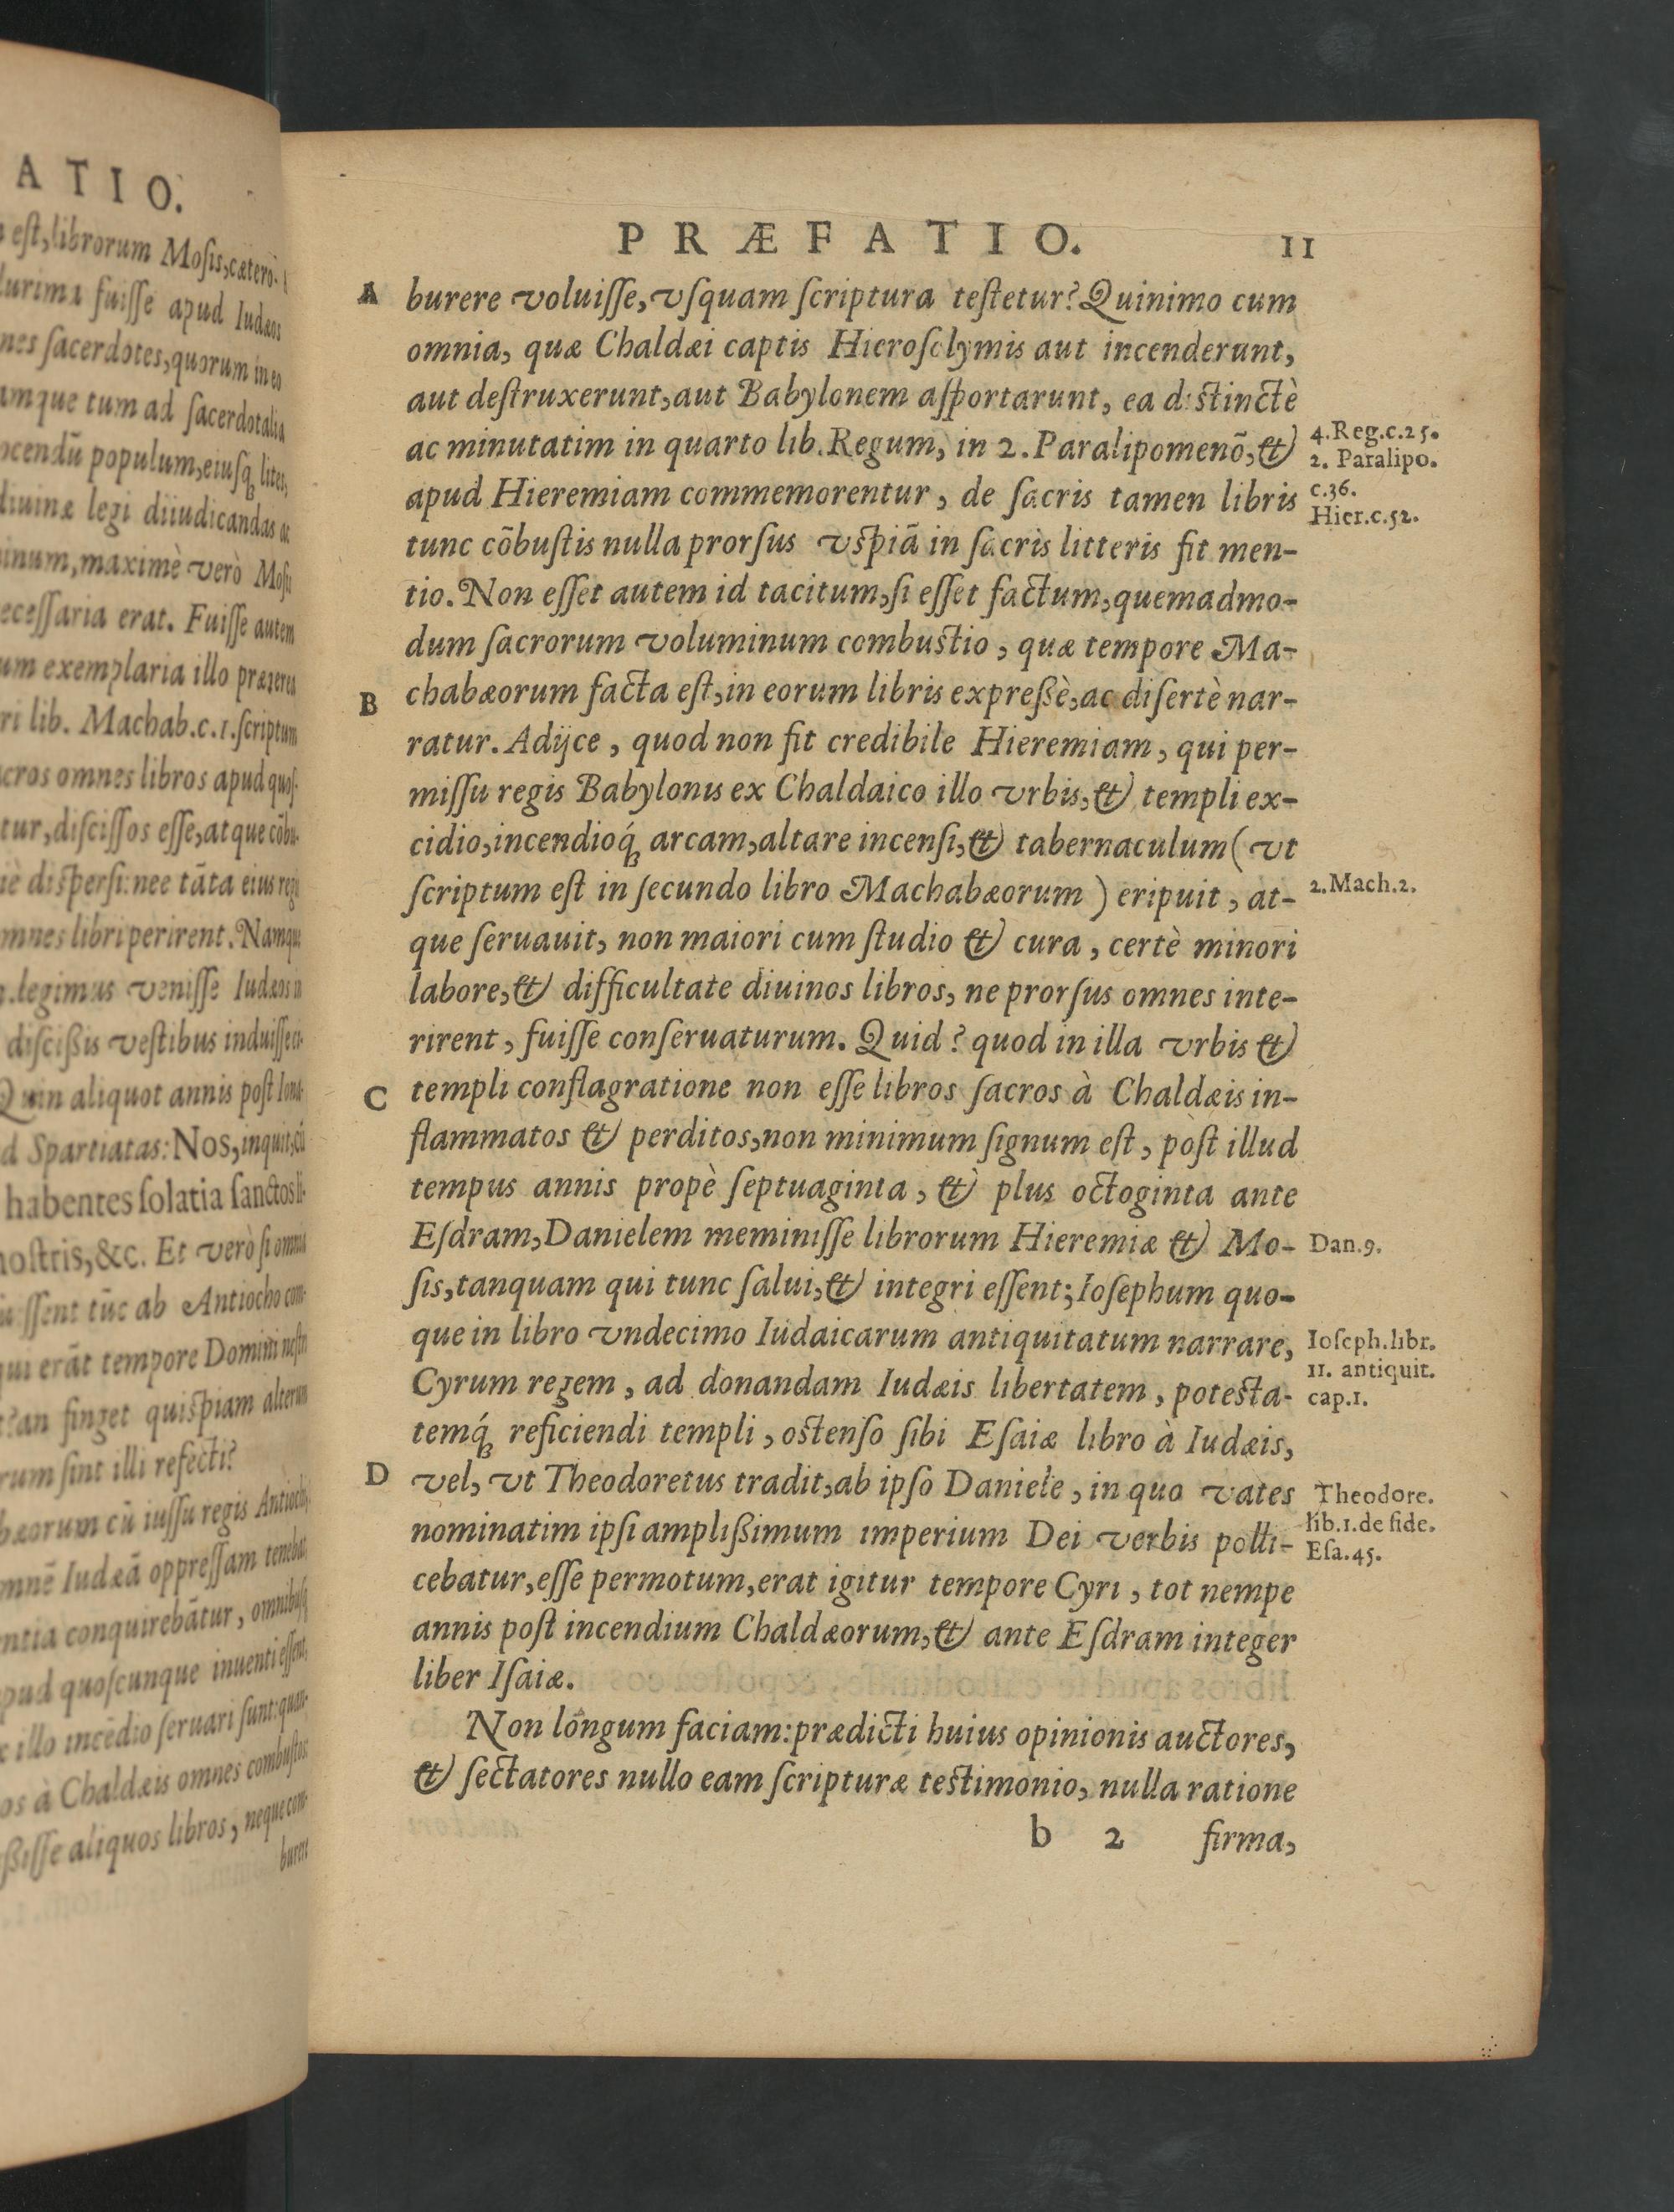 ATIO.
est, librorum Mosis, cætero-
fuisse apud Iudæos
sacerdotes, quorum in eo
tum ad sacerdotalia
populum, eiusq́ lites,
legi diiudicandas ac
maximè verò Mosis
erat. Fuisse autem
exemplaria illo præterea
lib. Machab. c. 1. scriptum
omnes libros apud quos-
discissos esse, atque cōbu-
dispersi: nec tāta eius regis
libri perirent. Namque
legimus venisse Iudæos in
discißis vestibus induisse ci-
aliquot annis post Iona-
Spartiatas: Nos, inquit, cū
habentes solatia sanctos li-
nostris, &c. Et verò si omnia
tūc ab Antiocho com-
erāt tempore Domini nostri
an finget quispiam alterum
sint illi refecti?
cū iussu regis Antiochi,
Iudæā oppressam tenebat
conquirebātur, omnibusq́
quoscunque inuenti essent,
illo incēdio seruari sunt: quan-
à Chaldæis omnes combustos
aliquos libros, neque con-
burere
PRÆFATIO. 11
A burere voluisse, vsquam scriptura testetur? Quinimo cum
omnia, quæ Chaldæi captis Hierosolymis aut incenderunt,
aut destruxerunt, aut Babylonem asportarunt, ea distinctè
ac minutatim in quarto lib. Regum, in 2. Paralipomenō, &
4. Reg. c. 25.
2. Paralipo.
apud Hieremiam commemorentur, de sacris tamen libris
c. 36.
Hier. c. 52.
tunc cōbustis nulla prorsus vspiā in sacris litteris fit men-
tio. Non esset autem id tacitum, si esset factum, quemadmo-
dum sacrorum voluminum combustio, quæ tempore Ma-
B chabæorum facta est, in eorum libris expreßè, ac disertè nar-
ratur. Adijce, quod non fit credibile Hieremiam, qui per-
missu regis Babylonis ex Chaldaico illo vrbis, & templi ex-
cidio, incendioq́ arcam, altare incensi, & tabernaculum (vt
scriptum est in secundo libro Machabæorum) eripuit, at-
2. Mach. 2.
que seruauit, non maiori cum studio & cura, certè minori
labore, & difficultate diuinos libros, ne prorsus omnes inte-
rirent, fuisse conseruaturum. Quid? quod in illa vrbis &
C templi conflagratione non esse libros sacros à Chaldæis in-
flammatos & perditos, non minimum signum est, post illud
tempus annis propè septuaginta, & plus octoginta ante
Esdram, Danielem meminisse librorum Hieremiæ & Mo-
Dan. 9.
sis, tanquam qui tunc salui, & integri essent; Iosephum quo-
que in libro vndecimo Iudaicarum antiquitatum narrare,
Ioseph. libr.
11. antiquit.
cap. 1.
Cyrum regem, ad donandam Iudæis libertatem, potesta-
temq́ reficiendi templi, ostenso sibi Esaiæ libro à Iudæis,
D vel, vt Theodoretus tradit, ab ipso Daniele, in quo vates
Theodore.
lib. 1. de fide.
Esa. 45.
nominatim ipsi amplißimum imperium Dei verbis polli-
cebatur, esse permotum, erat igitur tempore Cyri, tot nempe
annis post incendium Chaldæorum, & ante Esdram integer
liber Isaiæ.
Non longum faciam: prædicti huius opinionis auctores,
& sectatores nullo eam scripturæ testimonio, nulla ratione
b 2 firma,